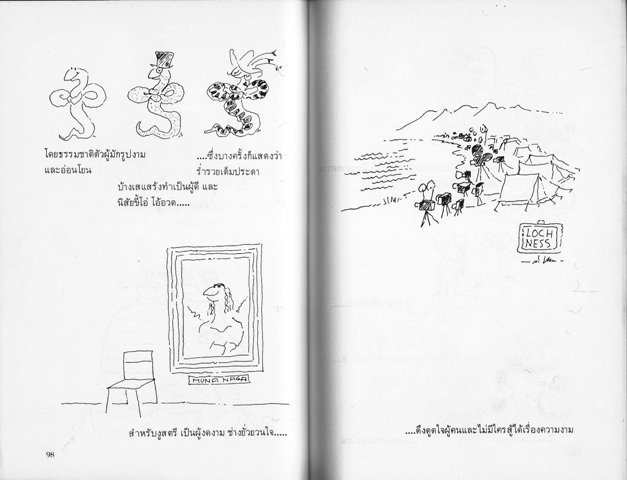 โดยธรรมชาติตัวผู้มักรูปงาม
และอ่อนโยน
....ซึ่งบางครั้งก็แสดงว่า
ร่ำรวยเต็มประดา
บ้างเสแสร้งทำเป็นผู้ดี และ
นิสัยขี้โอ่ โอ้อวด.....
MUNA NAGA
สำหรับงูสตรี เป็นผู้งดงาม ช่างยั่วยวนใจ.....
98
LOCH
NESS
....ดึงดูดใจผู้คนและไม่มีใครสู้ได้เรื่องความงาม